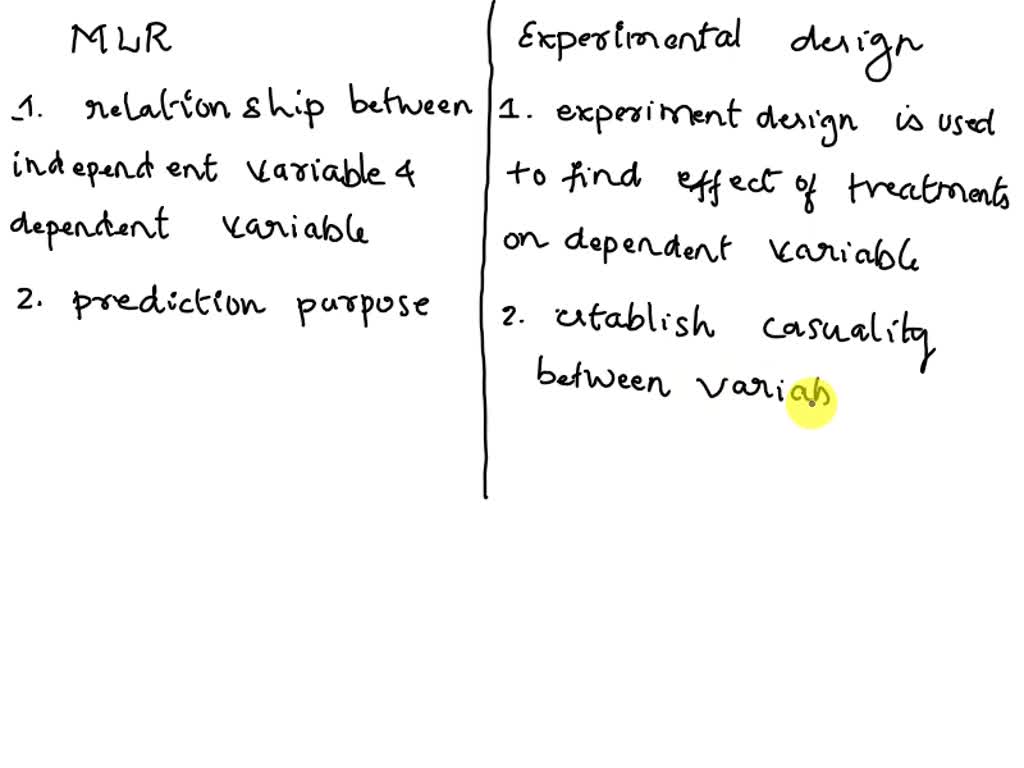 MLR
1. relationship between
independent variable &
dependent variable
2. prediction purpose
Experimental design
1. experiment design is used
to find effect of treatments
on dependent variable
2. establish casuality
between variab